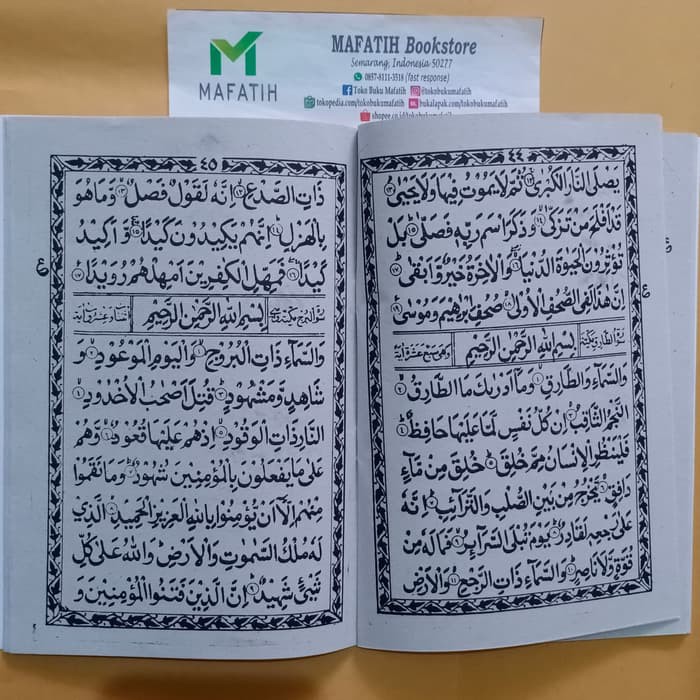 MAFATIH
MAFATIH Bookstore
Semarang, Indonesia 50277
0857-8111-3518 (fast response)
Toko Buku Mafatih @tokobukumafatih
tokopedia.com/tokobukumafatih bukalapak.com/tokobukumafatih
shopee.co.id/tokobukumafatih
٤٤
يَصْلَى النَّارَ الْكُبْرٰى ١٢ ثُمَّ لَا يَمُوتُ فِيهَا وَلَا يَحْيٰى ١٣
قَدْ اَفْلَحَ مَنْ تَزَكّٰى ١٤ وَذَكَرَ اسْمَ رَبِّهٖ فَصَلّٰى ١٥ بَلْ
تُؤْثِرُونَ الْحَيٰوةَ الدُّنْيَا ١٦ وَالْاٰخِرَةُ خَيْرٌ وَّاَبْقٰى ١٧
اِنَّ هٰذَا لَفِى الصُّحُفِ الْاُولٰى ١٨ صُحُفِ اِبْرٰهِيمَ وَمُوسٰى ١٩
سورة الطارق مكية بِسْمِ اللهِ الرَّحْمٰنِ الرَّحِيمِ وهى سبع عشرة اية
وَالسَّمَاءِ وَالطَّارِقِ ١ وَمَا اَدْرٰىكَ مَا الطَّارِقُ ٢
النَّجْمُ الثَّاقِبُ ٣ اِنْ كُلُّ نَفْسٍ لَّمَّا عَلَيْهَا حَافِظٌ ٤
فَلْيَنْظُرِ الْاِنْسَانُ مِمَّ خُلِقَ ٥ خُلِقَ مِنْ مَّاءٍ
دَافِقٍ ٦ يَّخْرُجُ مِنْ بَيْنِ الصُّلْبِ وَالتَّرَآئِبِ ٧ اِنَّهٗ
عَلٰى رَجْعِهٖ لَقَادِرٌ ٨ يَوْمَ تُبْلَى السَّرَآئِرُ ٩ فَمَا لَهٗ مِنْ
قُوَّةٍ وَّلَا نَاصِرٍ ١٠ وَالسَّمَاءِ ذَاتِ الرَّجْعِ ١١ وَالْاَرْضِ
٤٥
ذَاتِ الصَّدْعِ ١٢ اِنَّهٗ لَقَوْلٌ فَصْلٌ ١٣ وَّمَا هُوَ
بِالْهَزْلِ ١٤ اِنَّهُمْ يَكِيدُونَ كَيْدًا ١٥ وَّاَكِيدُ
كَيْدًا ١٦ فَمَهِّلِ الْكٰفِرِينَ اَمْهِلْهُمْ رُوَيْدًا ١٧
سورة البروج مكية وهى بِسْمِ اللهِ الرَّحْمٰنِ الرَّحِيمِ اثنتان وعشرون اية
وَالسَّمَاءِ ذَاتِ الْبُرُوجِ ١ وَالْيَوْمِ الْمَوْعُودِ ٢ وَ
شَاهِدٍ وَّمَشْهُودٍ ٣ قُتِلَ اَصْحٰبُ الْاُخْدُودِ ٤
النَّارِ ذَاتِ الْوَقُودِ ٥ اِذْ هُمْ عَلَيْهَا قُعُودٌ ٦ وَّهُمْ
عَلٰى مَا يَفْعَلُونَ بِالْمُؤْمِنِينَ شُهُودٌ ٧ وَمَا نَقَمُوا
مِنْهُمْ اِلَّا اَنْ يُّؤْمِنُوا بِاللهِ الْعَزِيزِ الْحَمِيدِ ٨ الَّذِي
لَهٗ مُلْكُ السَّمٰوٰتِ وَالْاَرْضِ وَاللهُ عَلٰى كُلِّ
شَيْءٍ شَهِيدٌ ٩ اِنَّ الَّذِينَ فَتَنُوا الْمُؤْمِنِينَ وَ